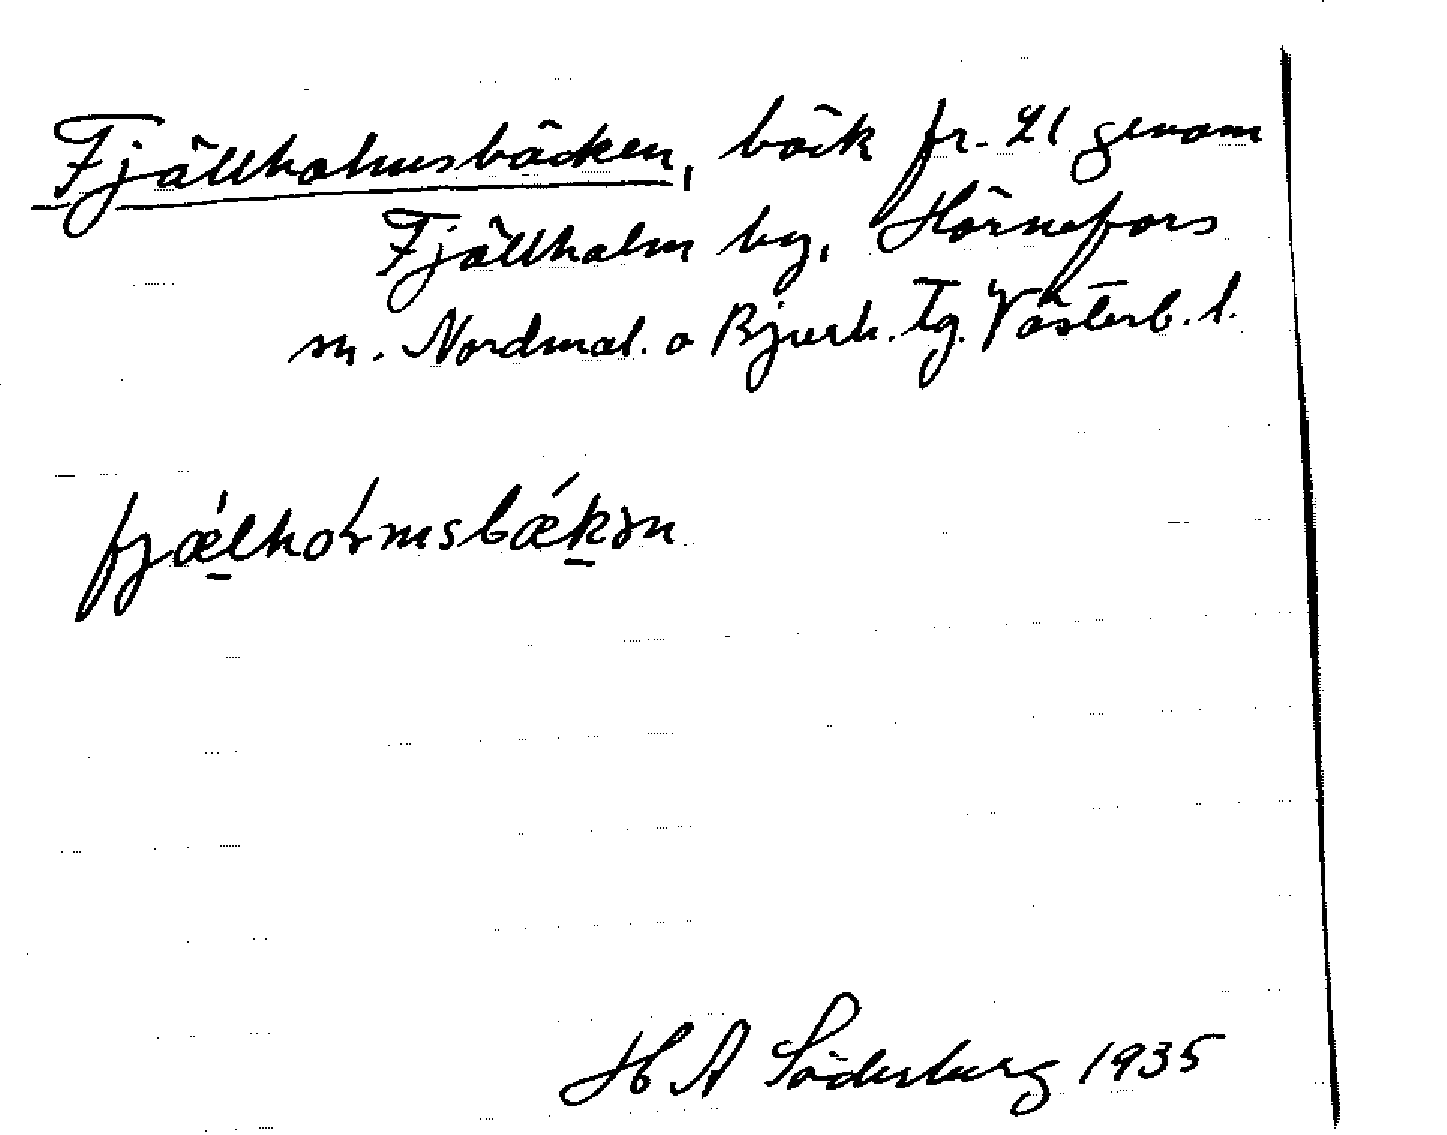 Fjällholmsbäcken, bäck fr. 21 genom
Fjällholm by, Hörnefors
sn. Nordmal. o Bjurh. Tg. Västerb. l.
fjælholmsbækən
H A Söderberg 1935